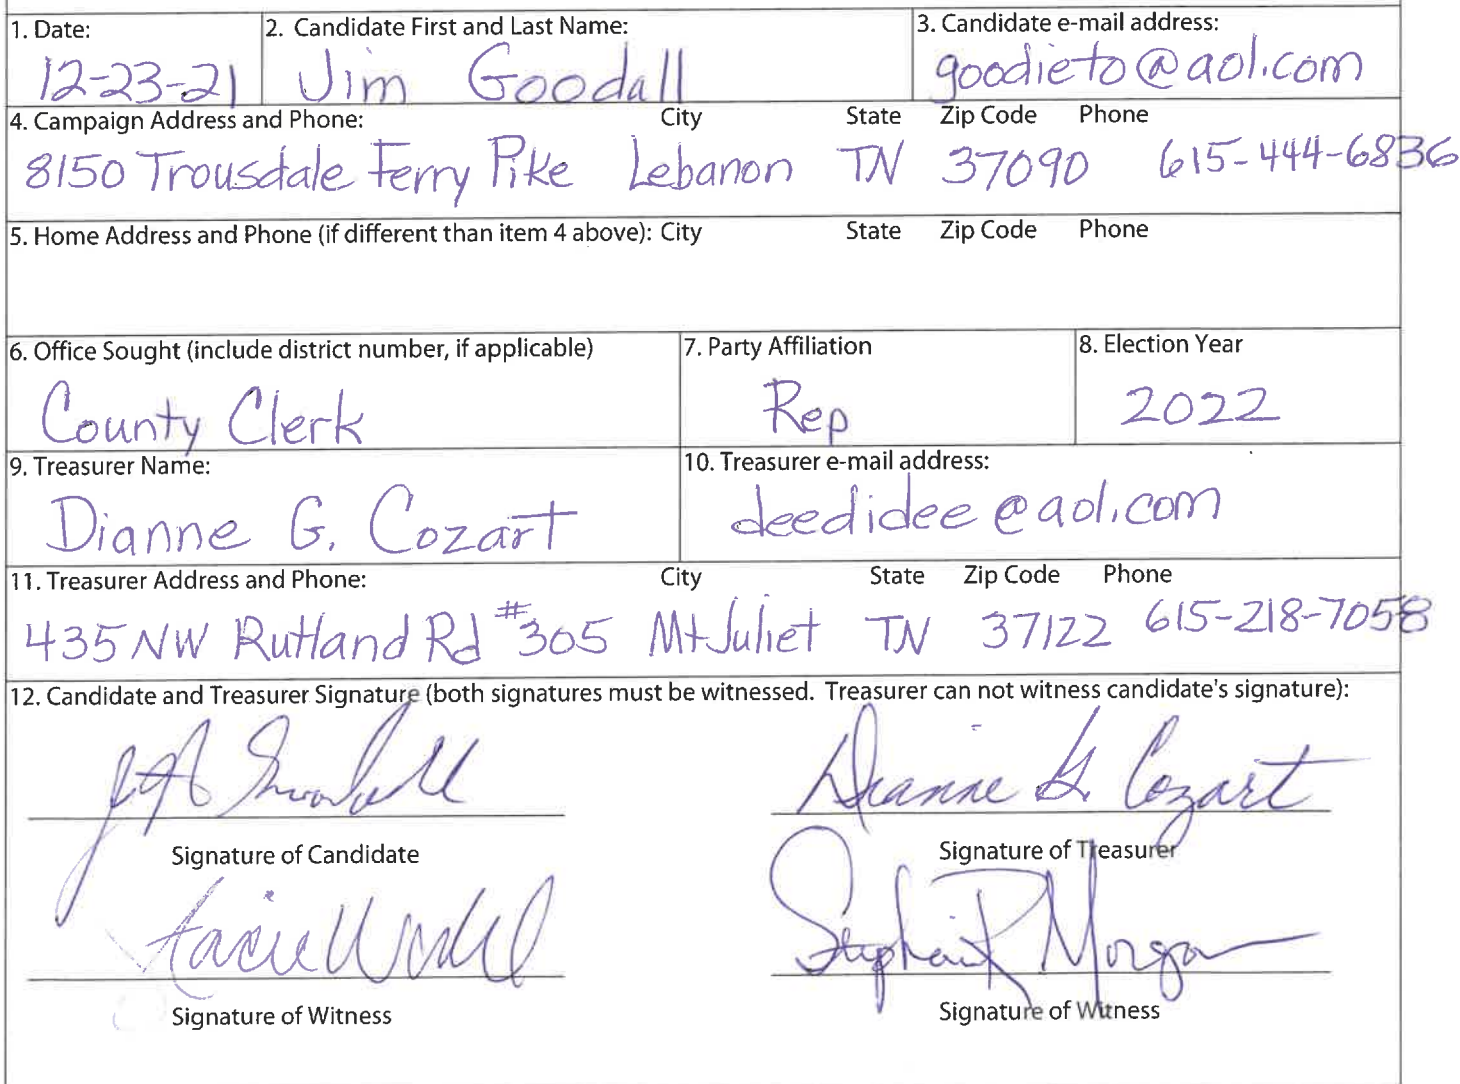 1. Date: 2. Candidate First and Last Name: 3. Candidate e-mail address:
12-23-21 Jim Goodall goodieto@aol.com
4. Campaign Address and Phone: City State Zip Code Phone
8150 Trousdale Ferry Pike Lebanon TN 37090 615-444-6836
5. Home Address and Phone (if different than item 4 above): City State Zip Code Phone
6. Office Sought (include district number, if applicable) 7. Party Affiliation 8. Election Year
County Clerk Rep 2022
9. Treasurer Name: 10. Treasurer e-mail address:
Dianne G. Cozart deedidee@aol.com
11. Treasurer Address and Phone: City State Zip Code Phone
435 NW Rutland Rd #305 Mt Juliet TN 37122 615-218-7058
12. Candidate and Treasurer Signature (both signatures must be witnessed. Treasurer can not witness candidate's signature):
Goodall Dianne G. Cozart
Signature of Candidate Signature of Treasurer
Morgan
Signature of Witness Signature of Witness